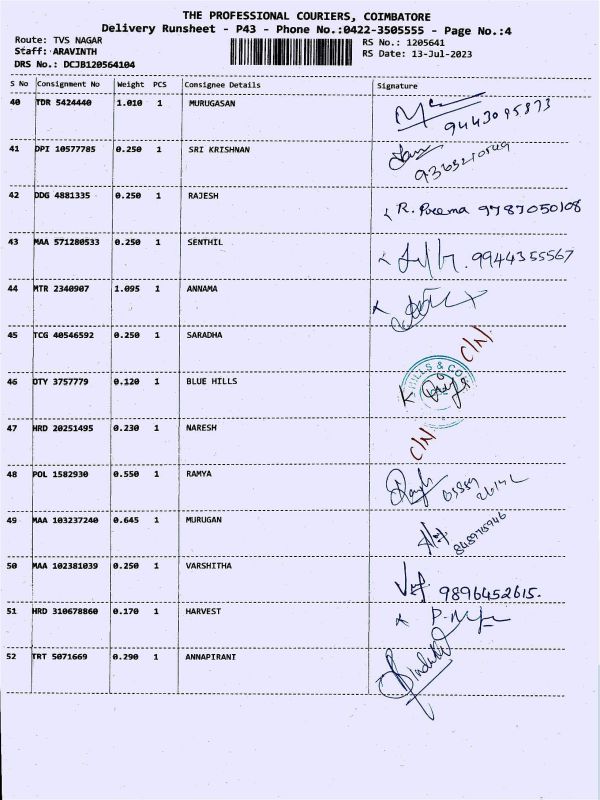 THE PROFESSIONAL COURIERS, COIMBATORE
Delivery Runsheet - P43 - Phone No.:0422-3505555 - Page No.:4
Route: TVS NAGAR RS No.: 1205641
Staff: ARAVINTH RS Date: 13-Jul-2023
DRS No.: DCJB120564104
S No Consignment No Weight PCS Consignee Details Signature
40 TDR 5424440 1.010 1 MURUGASAN
41 DPI 10577785 0.250 1 SRI KRISHNAN
42 DDG 4881335 0.250 1 RAJESH R. Preema 9787050108
43 MAA 571280533 0.250 1 SENTHIL 9944355567
44 MTR 2340907 1.095 1 ANNAMA
45 TCG 40546592 0.250 1 SARADHA C/N
46 OTY 3757779 0.120 1 BLUE HILLS HILLS & CO
47 HRD 20251495 0.230 1 NARESH C/N
48 POL 1582930 0.550 1 RAMYA
49 MAA 103237240 0.645 1 MURUGAN
50 MAA 102381039 0.250 1 VARSHITHA 9896452615.
51 HRD 310678860 0.170 1 HARVEST
52 TRT 5071669 0.290 1 ANNAPIRANI